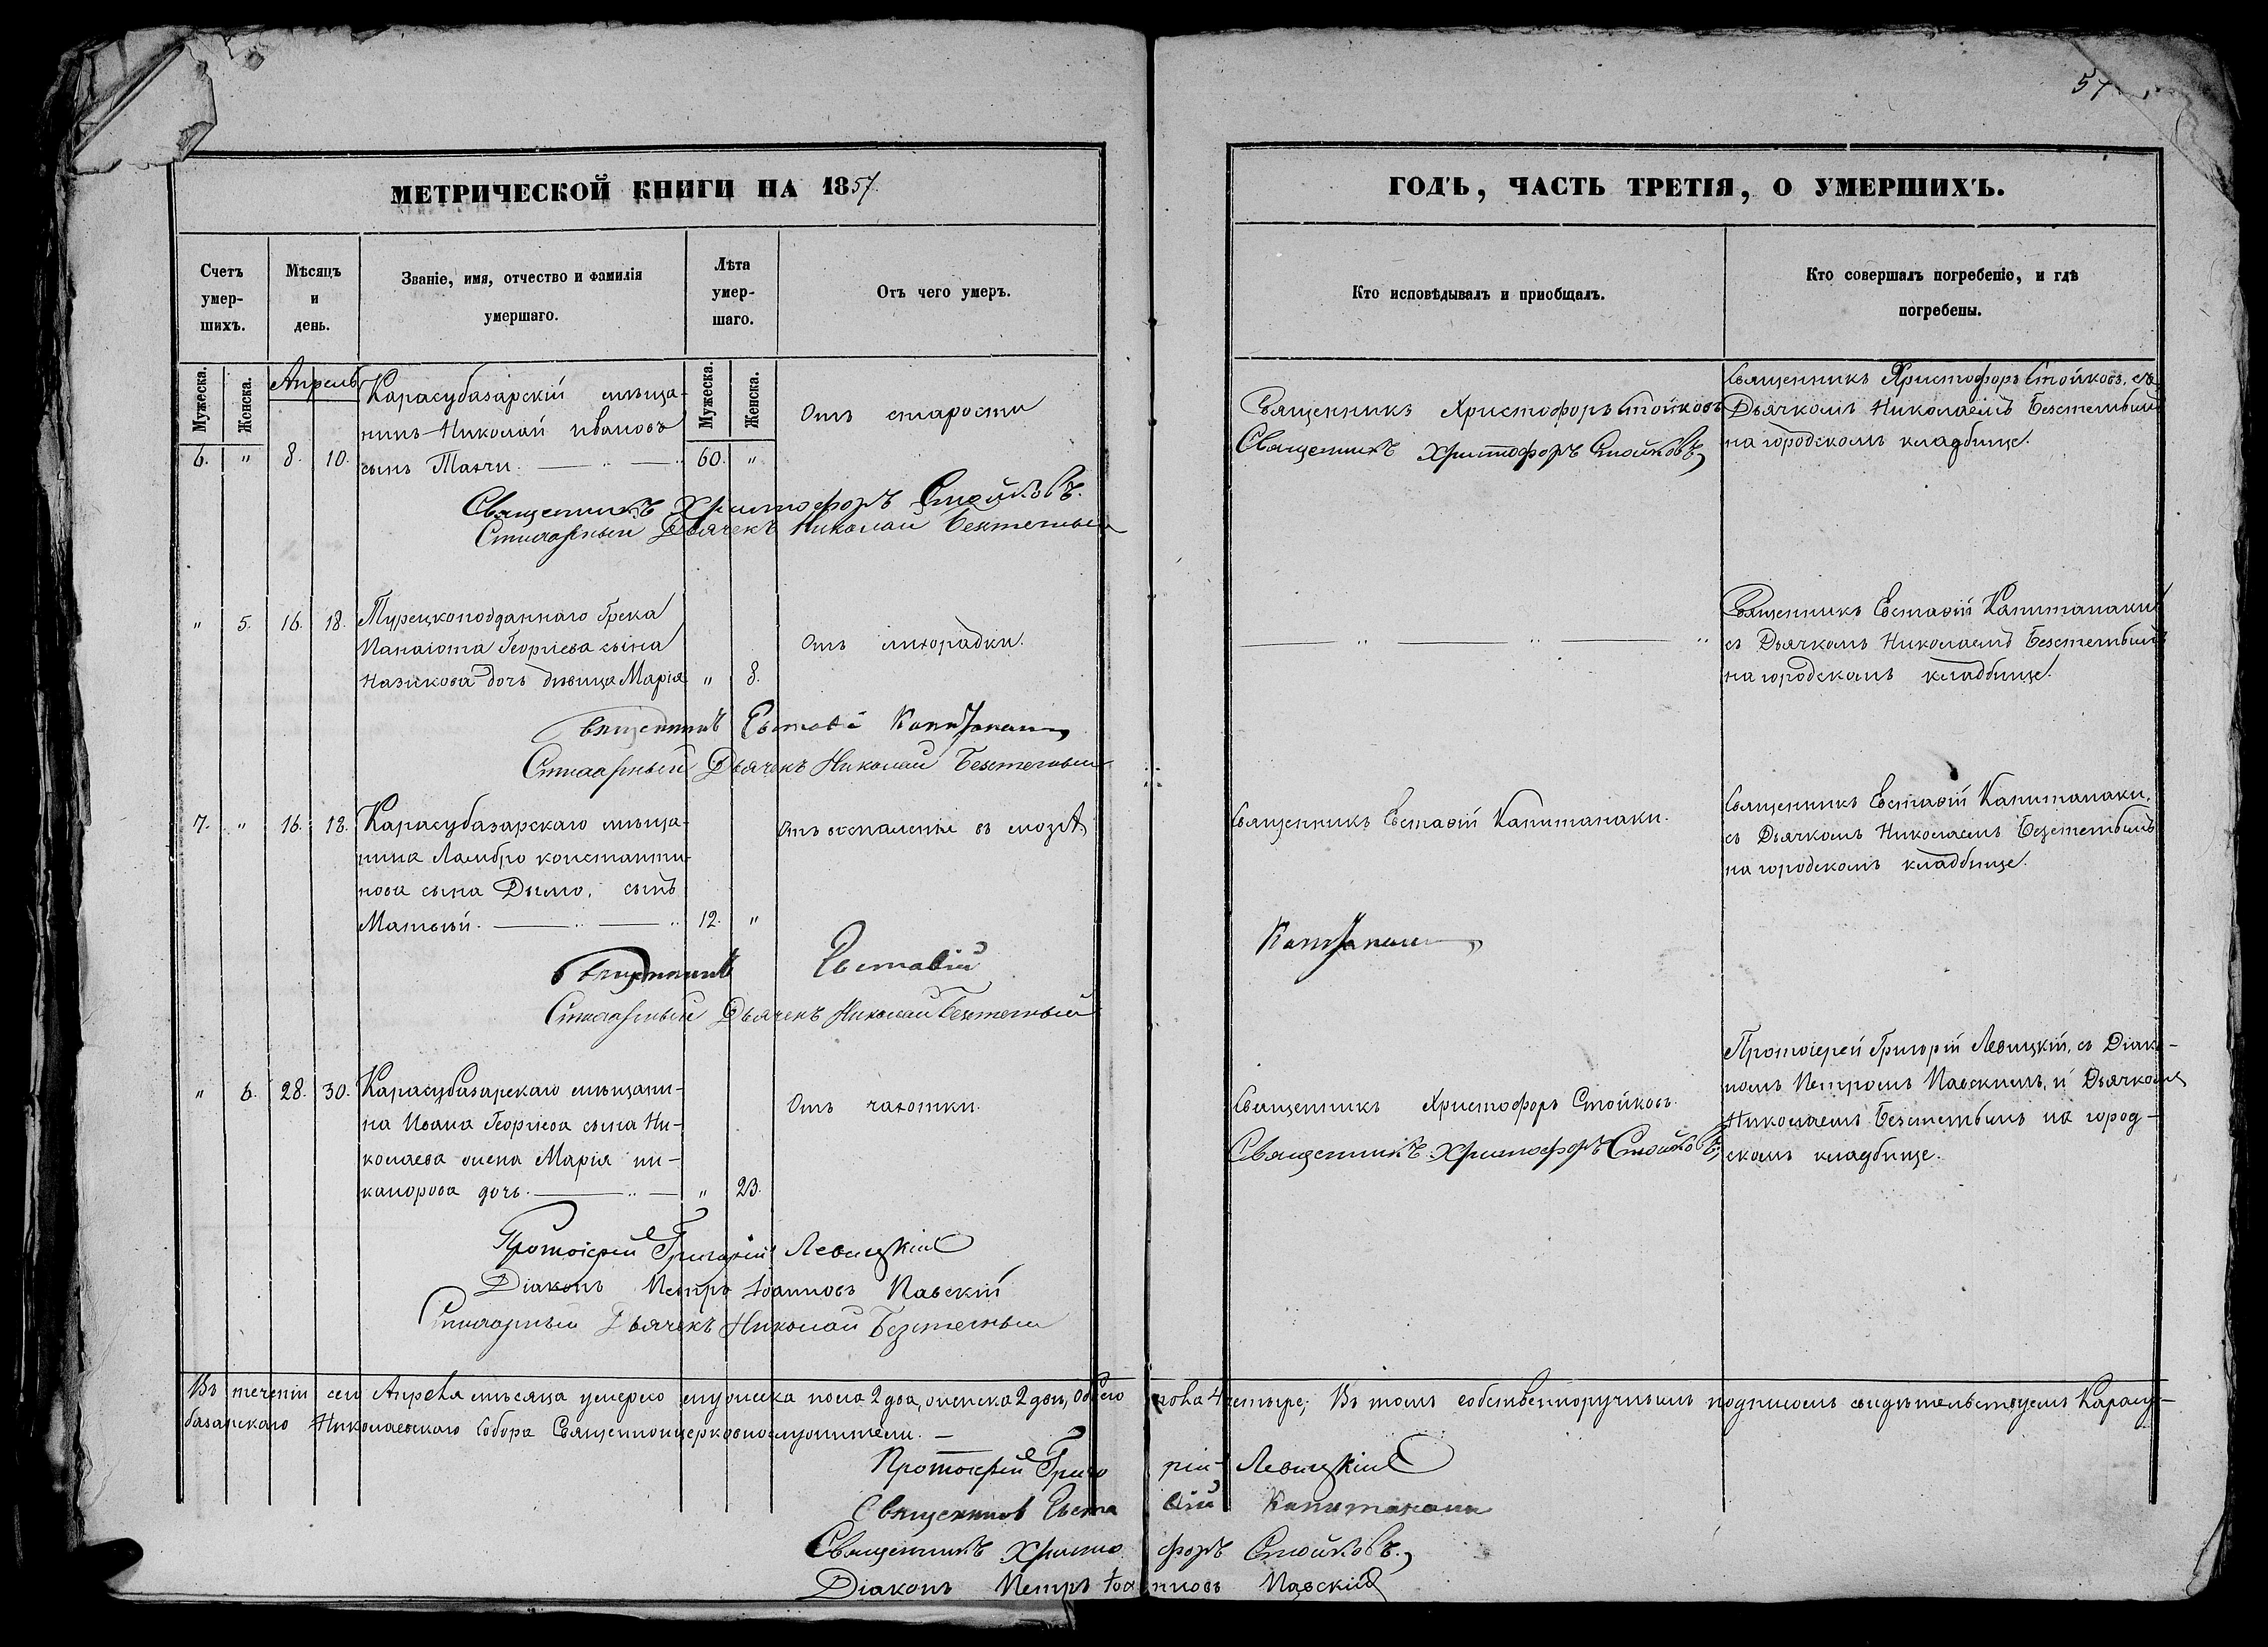 57
МЕТРИЧЕСКОЙ КНИГИ НА 1857.
ГОДЪ, ЧАСТЬ ТРЕТІЯ, О УМЕРШИХЪ.
Счетъ
умер-
шихъ.
Мѣсяцъ
и
день.
Званіе, имя, отчество и фамилія
умершаго.
Лѣта
умер-
шаго.
Отъ чего умеръ.
Кто исповѣдывалъ и пріобщалъ.
Кто совершалъ погребеніе, и гдѣ
погребены.
Мужеска.
Женска.
Апрель
Мужеска.
Женска.
6. " 8. 10.
Карасубазарскій мѣща-
нинъ Николай Ивановъ
сынъ
60. "
Отъ старости
Священникъ Христофоръ Стойковъ
Священникъ Христофоръ Стойковъ
Священникъ Христофоръ Стойковъ, съ
Дьячкомъ Николаемъ
на городскомъ кладбище.
Священникъ Христофоръ Стойковъ.
Стихарный Дьячекъ Николай
" 5. 16. 18.
Турецкоподданнаго Грека
Панаіота Георгіева сына
дочь дѣвица Марія
" 8.
Отъ лихорадки.
Священникъ Евстафій Капитанаки
съ Дьячкомъ Николаемъ
на городскомъ кладбище.
Священникъ Капитанаки
Стихарный Дьячекъ Николай
7. " 16. 18.
Карасубазарскаго мѣща-
нина Ламбро константи-
нова сына Дымо, сынъ
Матвѣй.
12. "
Отъ воспаленія въ мозгѣ.
Священникъ Евстафій Капитанаки.
Капитанаки
Священникъ Евстафій Капитанаки,
съ Дьячкомъ Николаемъ
на городскомъ кладбище.
Священникъ
Стихарный Дьячекъ Николай
" 6. 28. 30.
Карасубазарскаго мѣщани-
на Ивана Георгіева сына Ни-
колаева жена Марія ни-
канорова дочь.
" 23.
Отъ чахотки.
Священникъ Христофоръ Стойковъ.
Священникъ Христофоръ Стойковъ,
Протоіерей Григорій Левицкій, съ Діако-
номъ Петромъ Павскимъ, и Дьячкомъ
Николаемъ на город-
скомъ кладбище.
Протоіерей Григорій Левицкій
Діаконъ Петръ Іоанновъ Павскій
Стихарный Дьячекъ Николай
Въ теченіи сего Апреля мѣсяца умерло мужеска пола 2 два, женска 2 двѣ, Обоего пола 4 четыре; Въ томъ собственноручнымъ подписомъ свидѣтельствуемъ Карасу-
базарскаго Николаевскаго Собора Священноицерковнослужители. —
Протоіерей Григорій Левицкій
Священникъ Капитанаки
Священникъ Христофоръ Стойковъ.
Діаконъ Петръ Іоанновъ Павскій